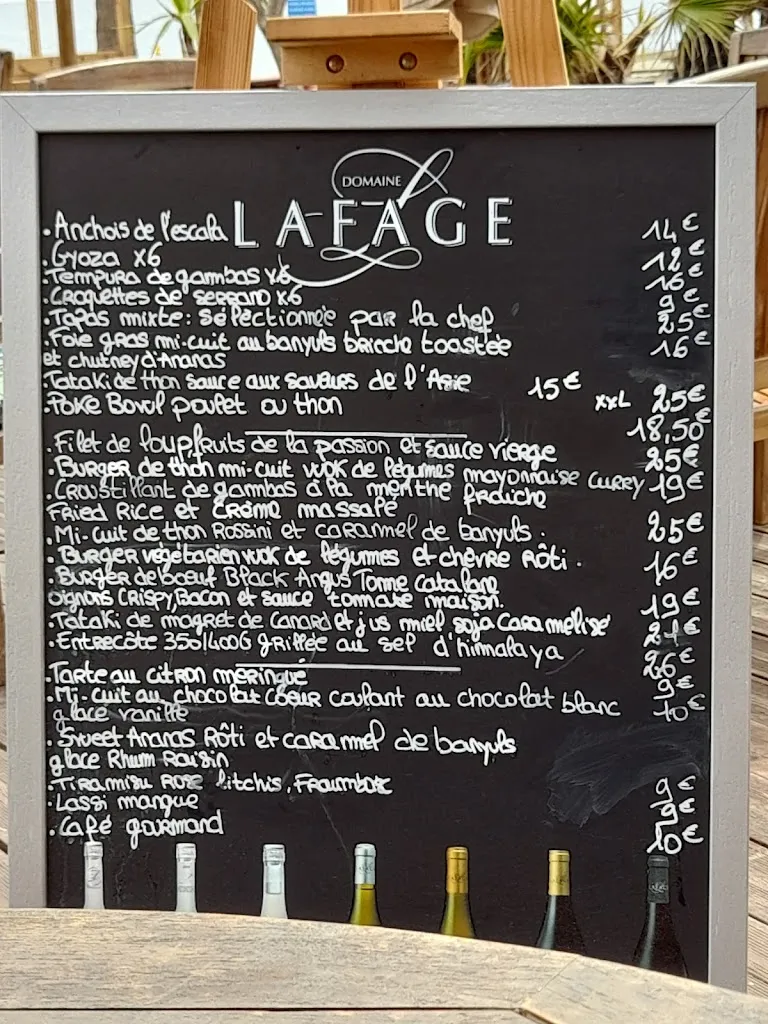 DOMAINE
LAFAGE
.Anchois de l'escala 14€
.Gyoza x6 12€
.Tempura de gambas x6 16€
.Croquettes de serrano x6 9€
.Tapas mixte: sélectionnée par la chef 25€
.Foie gras mi-cuit au banyuls brioche toastée 16€
et chutney d'Ananas
.Tataki de thon sauce aux saveurs de l'Asie 15€ XXL 25€
.Poke Bowl poulet ou thon 18,50€
.Filet de loup fruits de la passion et sauce vierge 25€
.Burger de thon mi-cuit wok de légumes mayonnaise curry 19€
.Croustillant de gambas à la menthe fraîche
Fried Rice et crème massalé 25€
.Mi-cuit de thon Rossini et caramel de banyuls.
.Burger végétarien wok de légumes et chèvre Rôti. 16€
.Burger de boeuf Black Angus Tome catalane
oignons CRISPY, Bacon et sauce tomate maison. 19€
.Tataki de magret de canard et jus miel soja caramélisé 21€
.Entrecôte 350/400G grillée au sel d'himalaya 26€
.Tarte au citron meringué 9€
.Mi-cuit au chocolat coeur coulant au chocolat blanc 10€
glace vanille
.Sweet Ananas Rôti et caramel de banyuls
glace Rhum Raisin
.Tiramisu Rose litchis, Framboise 9€
.Lassi mangue 9€
.Café gourmand 10€